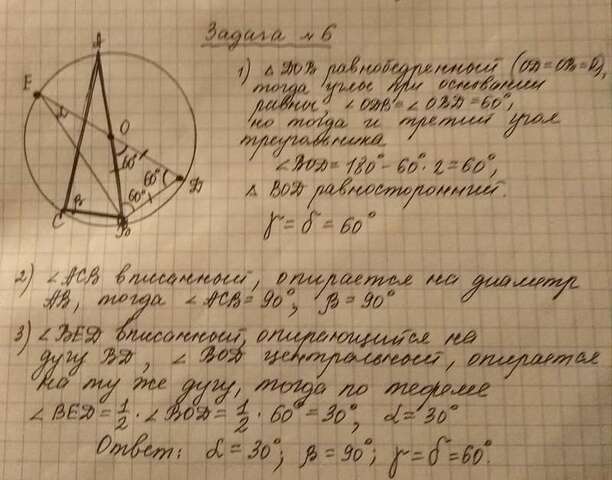 Задача №6
1) △ DOB равнобедренный (OD=OB=R),
тогда углы при основании
равны, ∠ODB=∠OBD=60°,
но тогда и третий угол
треугольника
∠BOD=180°-60°·2=60°,
△ BOD равносторонний.
γ=δ=60°
A
E
O
α
60°
60°
60°
D
β
C
B
2) ∠ACB вписанный, опирается на диаметр
AB, тогда ∠ACB=90°, β=90°
3) ∠BED вписанный, опирающийся на
дугу BD, ∠BOD центральный, опирается
на ту же дугу, тогда по теореме
∠BED=1/2·∠BOD=1/2·60°=30°, α=30°
Ответ: α=30°; β=90°; γ=δ=60°.